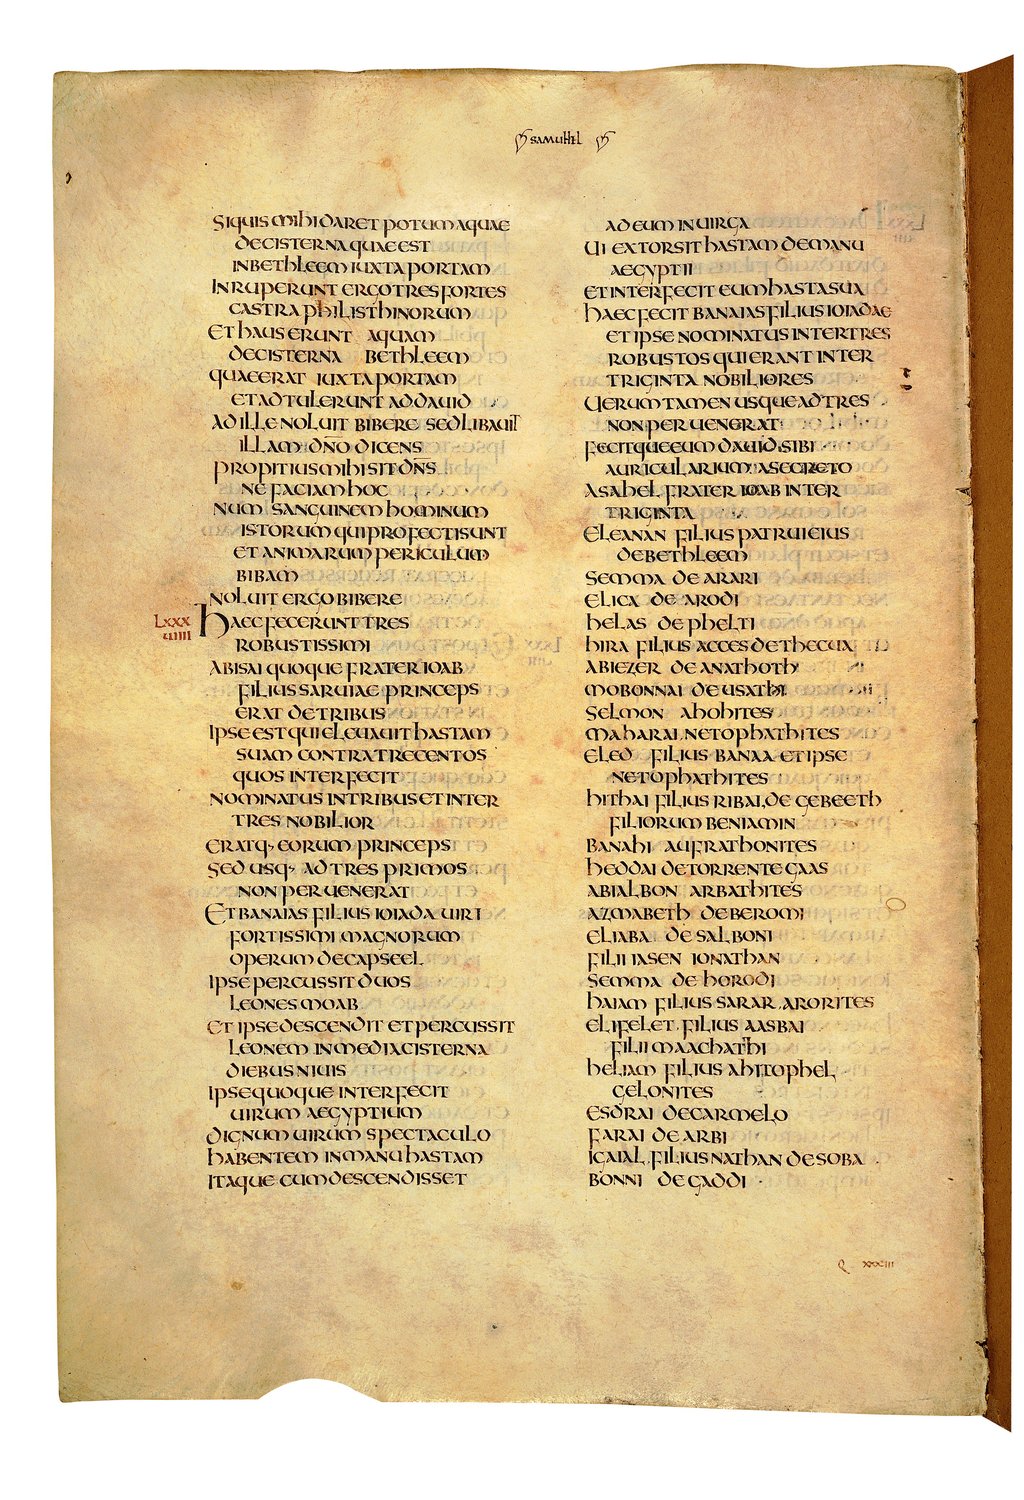 SAMUHEL
SIQUIS MIHI DARET POTUM AQUAE
DECISTERNA QUAE EST
IN BETHLEEM IUXTA PORTAM
INRUPERUNT ERGO TRES FORTES
CASTRA PHILISTHINORUM
ET HAUSERUNT AQUAM
DECISTERNA BETHLEEM
QUAE ERAT IUXTA PORTAM
ET ADTULERUNT AD DAUID
AD ILLE NOLUIT BIBERE SED LIBAUIT
ILLAM DN̄O DICENS
PROPITIUS MIHI SIT DN̄S
NE FACIAM HOC
NUM SANGUINEM HOMINUM
ISTORUM QUI PROFECTI SUNT
ET ANIMARUM PERICULUM
BIBAM
NOLUIT ERGO BIBERE
LXXX
UIIII
HAEC FECERUNT TRES
ROBUSTISSIMI
ABISAI QUOQUE FRATER IOAB
FILIUS SARUIAE PRINCEPS
ERAT DE TRIBUS
IPSE EST QUI ELEUAUIT HASTAM
SUAM CONTRA TRECENTOS
QUOS INTERFECIT
NOMINATUS IN TRIBUS ET INTER
TRES NOBILIOR
ERATQ· EORUM PRINCEPS
SED USQ· AD TRES PRIMOS
NON PERUENERAT
ET BANAIAS FILIUS IOIADA UIRI
FORTISSIMI MAGNORUM
OPERUM DE CAPSEEL
IPSE PERCUSSIT DUOS
LEONES MOAB
ET IPSE DESCENDIT ET PERCUSSIT
LEONEM IN MEDIA CISTERNA
DIEBUS NIUIS
IPSE QUOQUE INTERFECIT
UIRUM AEGYPTIUM
DIGNUM UIRUM SPECTACULO
HABENTEM IN MANU HASTAM
ITAQUE CUM DESCENDISSET
AD EUM IN UIRGA
UI EXTORSIT HASTAM DE MANU
AEGYPTII
ET INTERFECIT EUM HASTA SUA
HAEC FECIT BANAIAS FILIUS IOIADAE
ET IPSE NOMINATUS INTER TRES
ROBUSTOS QUI ERANT INTER
TRIGINTA NOBILIORES
UERUM TAMEN USQUE AD TRES
NON PERUENERAT
FECITQUE EUM DAUID SIBI
AURICULARIUM A SECRETO
ASAHEL FRATER IOAB INTER
TRIGINTA
ELEANAN FILIUS PATRUI EIUS
DE BETHLEEM
SEMMA DE ARARI
ELICA DE ARODI
HELAS DE PHELTI
HIRA FILIUS ACCES DE THECUA
ABIEZER DE ANATHOTH
MOBONNAI DE USATHI
SELMON AHOHITES
MAHARAI NETOPHATHITES
ELED FILIUS BANAA ET IPSE
NETOPHATHITES
HITHAI FILIUS RIBAI DE GEBEETH
FILIORUM BENIAMIN
BANAHI AUFRATHONITES
HEDDAI DE TORRENTE GAAS
ABIALBON ARBATHITES
AZMABETH DE BEROMI
ELIABA DE SALBONI
FILII IASEN IONATHAN
SEMMA DE HORODI
HAIAM FILIUS SARAR ARORITES
ELIFELET FILIUS AASBAI
FILII MAACHATHI
HELIAM FILIUS AHITOPHEL
GELONITES
ESDRAI DE CARMELO
FARAI DE ARBI
IGAIAL FILIUS NATHAN DE SOBA
BONNI DE GADDI